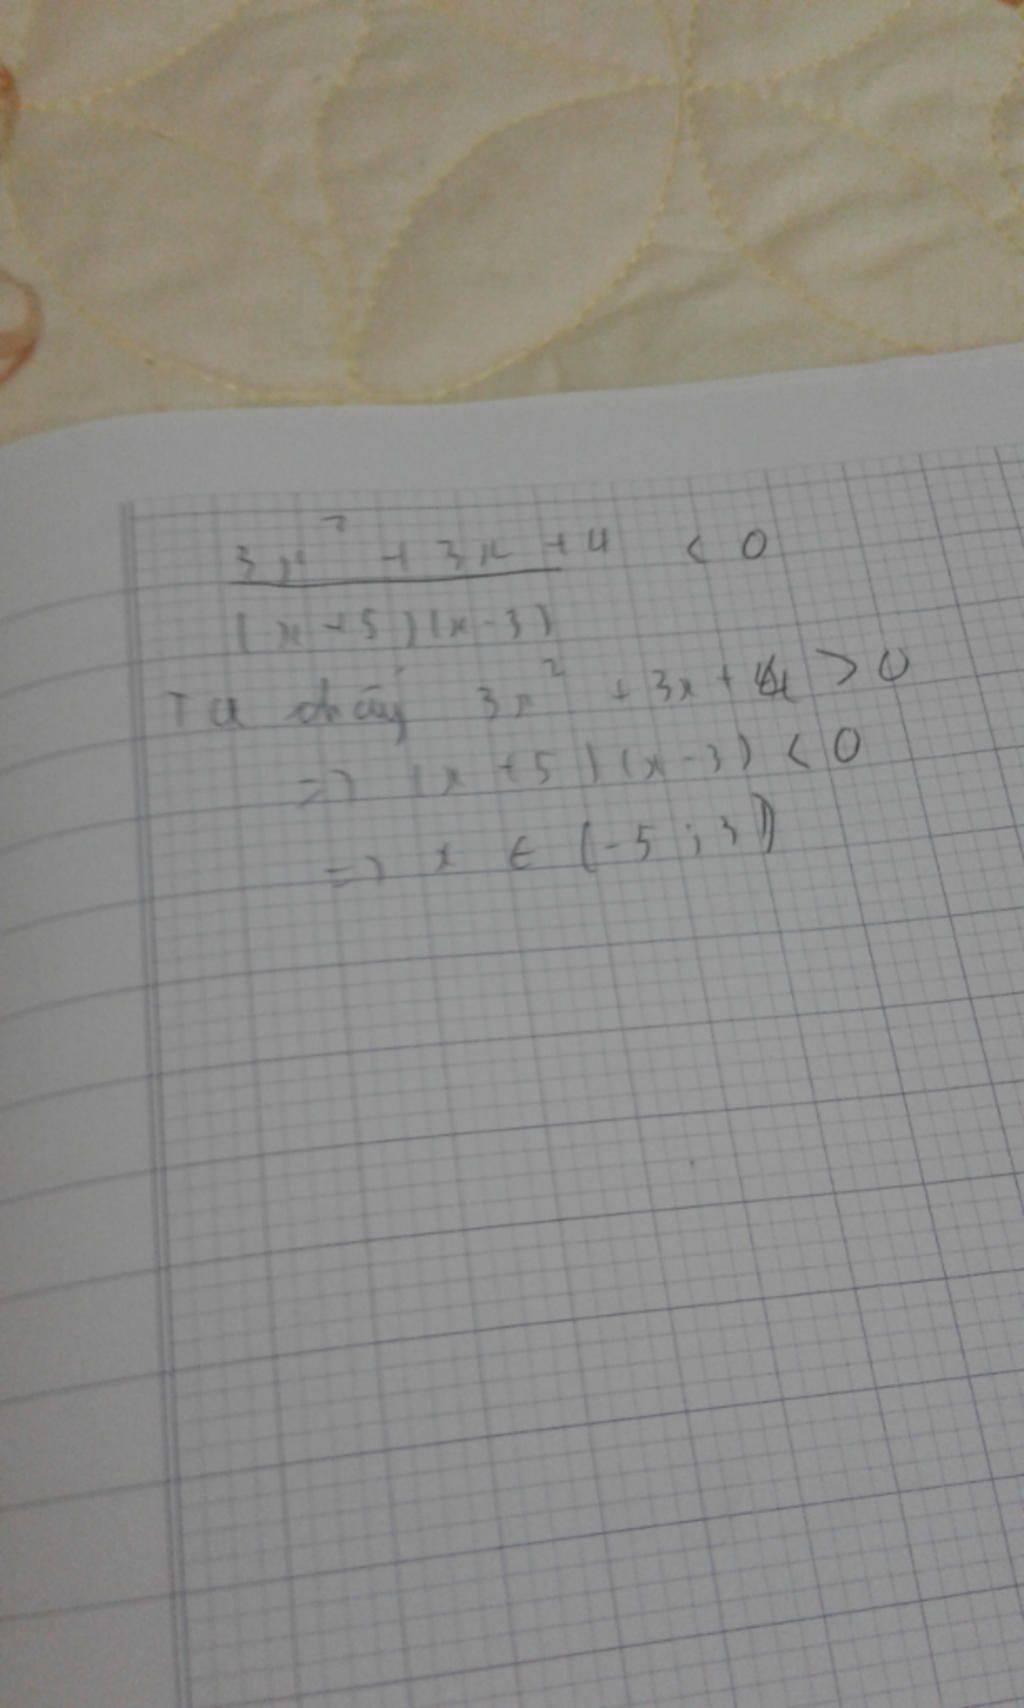 3x² + 3x + 4 < 0
(x+5)(x-3)
Ta thấy 3x² + 3x + 4 > 0
=> (x+5)(x-3) < 0
=> x ∈ (-5;3)